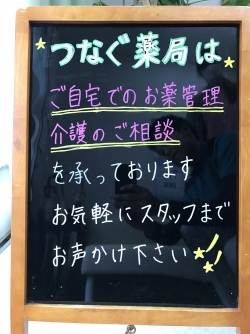 つなぐ薬局は
ご自宅でのお薬管理
介護のご相談
を承っております
お気軽にスタッフまで
お声かけ下さい